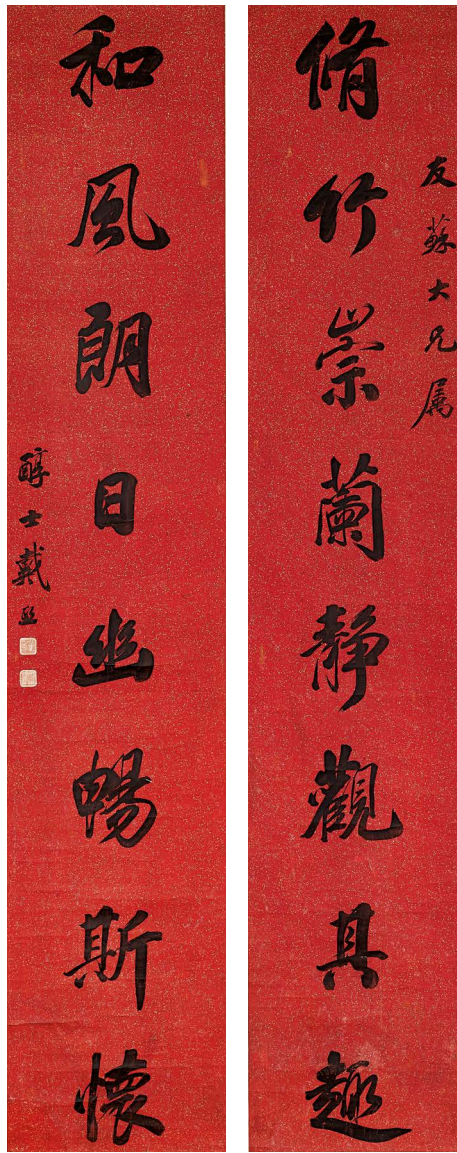 友蘇大兄属
脩竹崇蘭静觀其趣
和風朗日幽暢斯懷
醇士戴熙